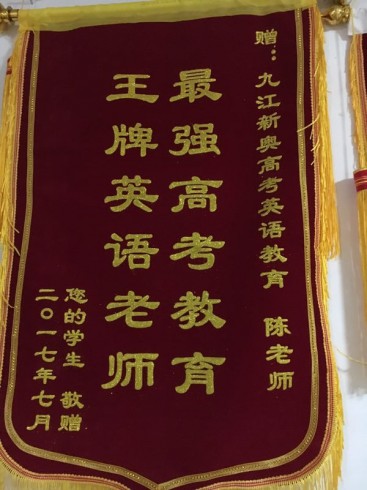 赠：九江新奥高考英语教育 陈老师
最强高考教育
王牌英语老师
您的学生 敬赠
二〇一七年七月